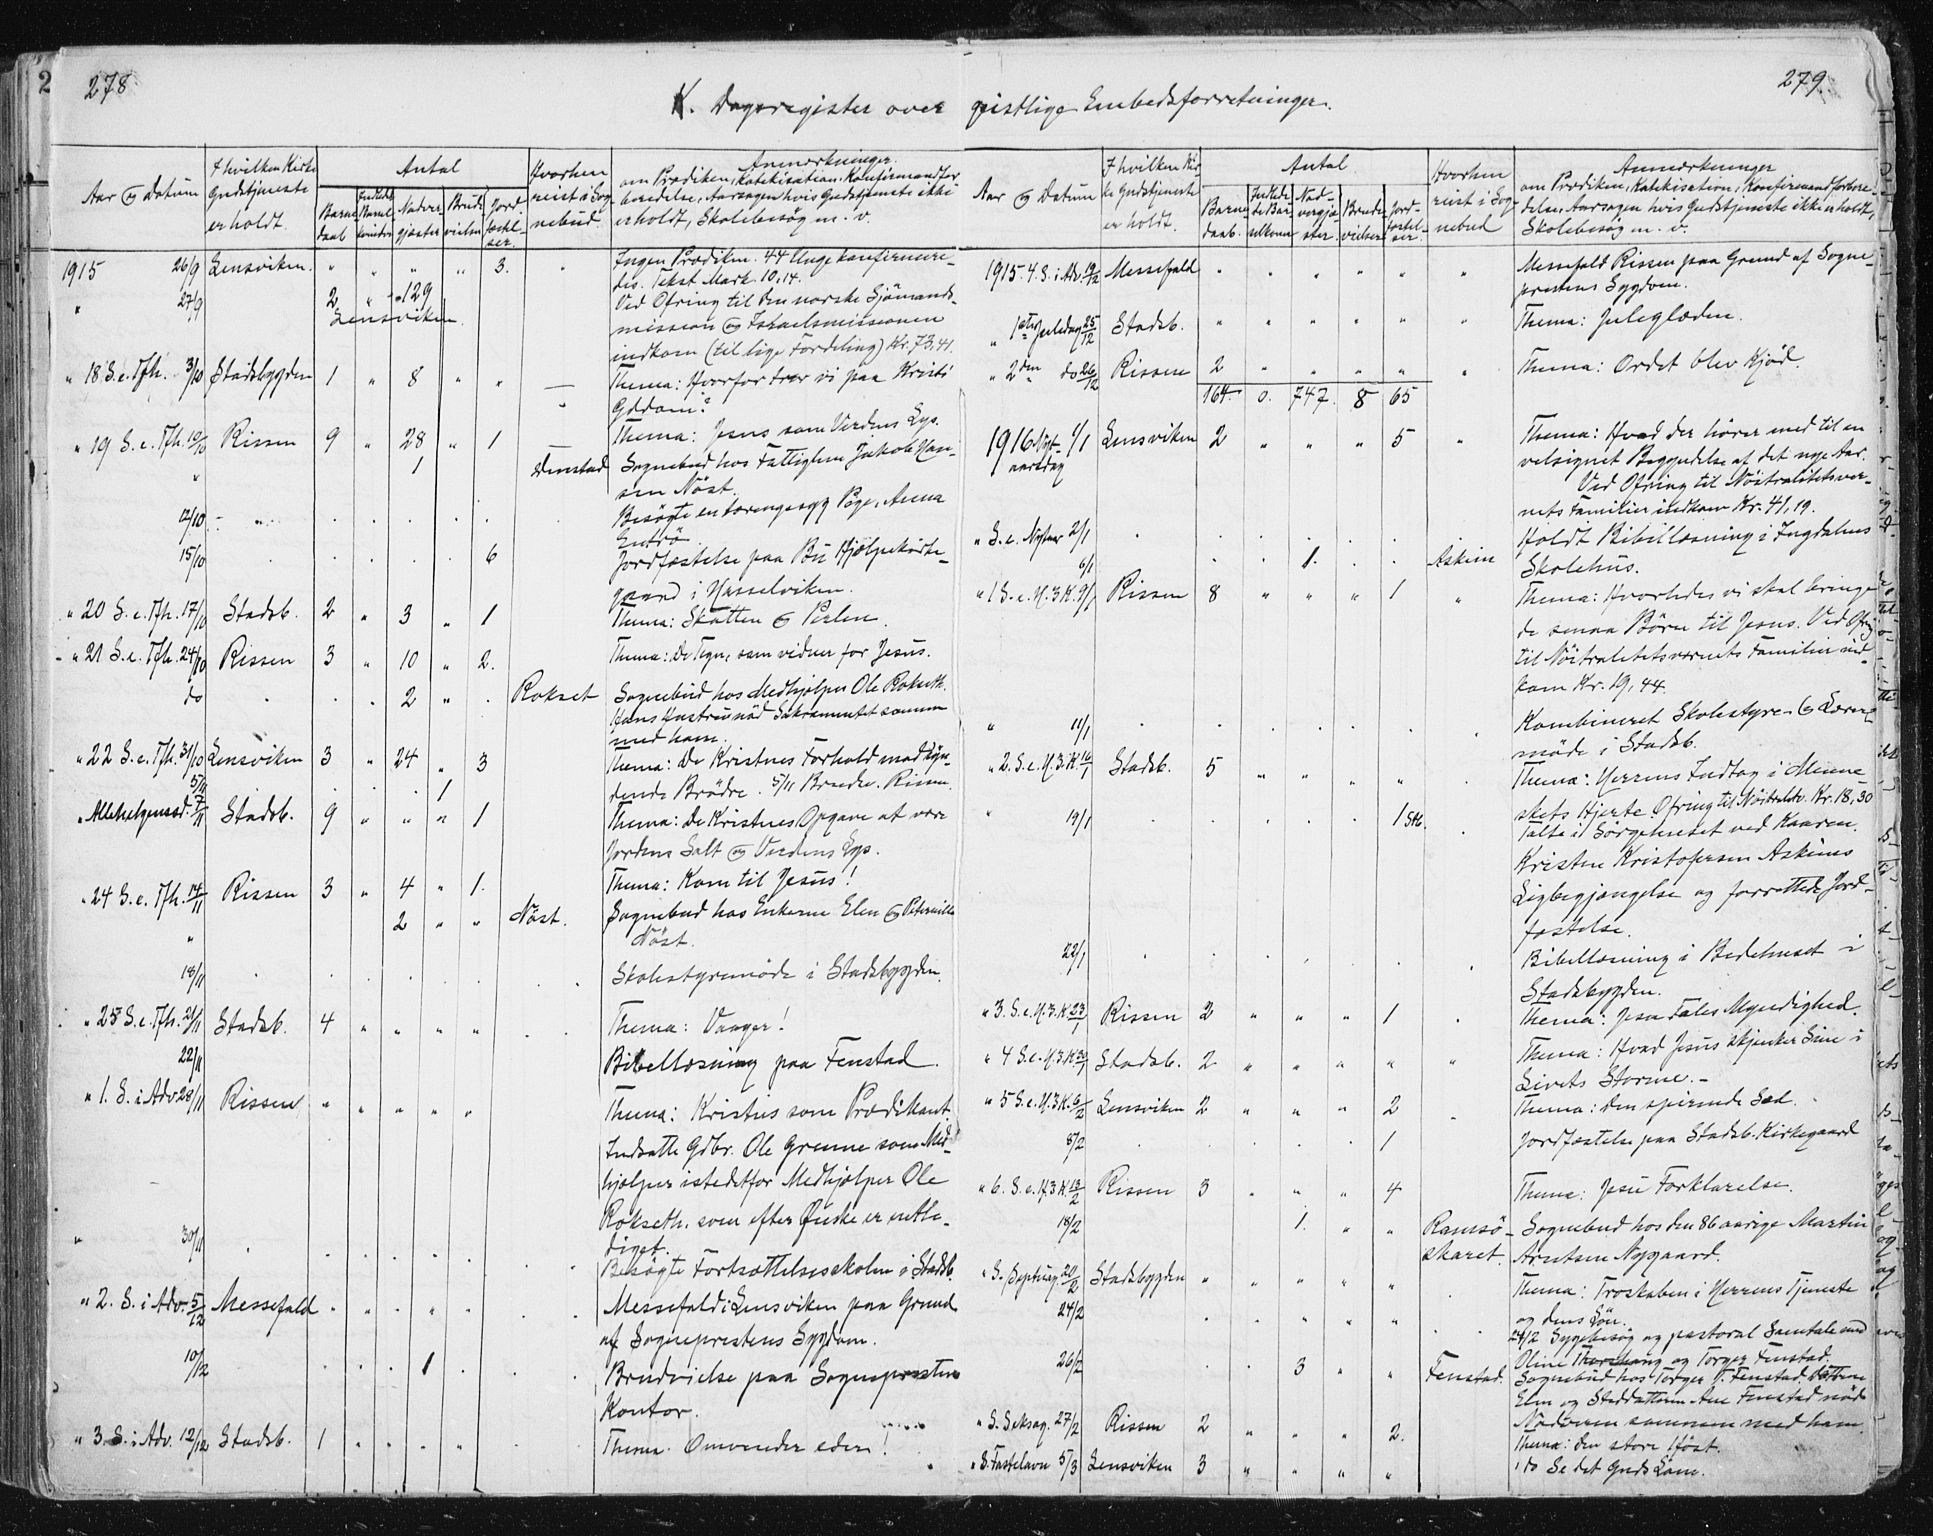 278
279
K. Dagsregister over geistlige Embedsforretninger.
Aar og Datum
I hvilken Kirke Gudstjeneste er holdt.
Antal
Barne daab
Indledte Barselkvinder
Nadvergjæster
Brudevielser
Jordfæstelser.
Hvorhen reist i Sognebud.
Anmærkninger
om Prædiken, Katekisation, Konfirmandforberedelse, Aarsagen hvis Gudstjeneste ikke er holdt, Skolebesøg m. v.
1915 26/9 Lensviken. " " " " 3. "
Ingen Prædiken. 44 Unge konfirmere-
des. Tekst Mark. 10,14.
" 27/9 2 " " 129
Lensviken.
Ved Ofring til den norske Sjömands-
mission og Israelsmissionen
indkom (til lige Fordeling) Kr. 73,41.
" 18 S. e. Tfh. 3/10 Stadsbygden 1 " 8 " " —
Thema: Hvorfor tror vi paa Kristi
Gddom?
" 19 S. e. Tfh. 10/10 Rissen 9 " 28 " 1 —
Thema: Jesus som Verdens Lys.
" 1 Denstad
Sognebud hos Fattiglem Jakob Han-
sen Nöst.
12/10 - "
Besögte en tæringssyg Pige, Anna
Enbrö.
15/10 6
Jordfæstelse paa Bu Hjælpekirke-
gaard i Hasselviken.
" 20 S. e. Tfh. 17/10 Stadsb. 2 " 3 " 1
Thema: Skatten og Perlen.
" 21 S. e. Tfh. 24/10 Rissen 3 " 10 " 2.
Thema: De Tegn, som vidner for Jesus.
do 2 " Rokset
Sognebud hos Medhjelper Ole Rokseth.
Hans Hustru nöd Sakramentet sammen
med ham.
" 22 S. e. Tfh. 31/10 Lensviken 3 " 24 " 3
Thema: De Kristnes Forhold mod syn-
5/11 1
dende Brödre. 5/11 Brudev. Rissen.
" Allehelgensd. 7/11 Stadsb. 9 " " " 1
Thema: De Kristnes Opgave at være
Jordens Salt og Verdens Lys.
" 24 S. e. Tfh. 14/11 Rissen 3 " 4 " 1.
Thema: Kom til Jesus!
" 2 " " Nöst.
Sognebud hos Enkerne Elen og Peternille
Nöst.
18/11
Skolestyremöde i Stadsbygden.
" 25 S. e. Tfh. 21/11 Stadsb. 4 " " " "
Thema: Vaager!
22/11
Bibellæsning paa Fenstad.
" 1. S. i Adv. 28/11 Rissen " " " " "
Thema: Kristus som Prædikant.
Indsatte Gdbr. Ole Grenne som Med-
hjælper istedetfor Medhjælper Ole
Rokseth. som efter Önske er entle-
diget.
" 30/11
Besögte Fortsættelsesskolen i Stadsb.
" 2. S. i Adv. 5/12 Messefald
Messefald i Lensviken paa Grund
af Sogneprestens Sygdom.
10/12 1
Brudvielse paa Sogneprestens
Kontor.
" 3. S. i Adv. 12/12 Stadsb. 1 " " " "
Thema. Omvender eder!
Aar og Datum
I hvilken Kirke Gudstjeneste er holdt.
Antal
Barne daab.
Indledte Barselkoner
Nadvergjæster
Brudevielser
Jordfæstelser.
Hvorhen reist i Sognebud
Anmærkninger
om Prædiken, Katekisation, Konfirmandforbere-
delse, Aarsagen hvis Gudstjeneste ikke er holdt,
Skolebesøg m. v.
1915 4. S. i Adv. 19/12 Messefald " " " " " "
Messefald Rissen paa Grund af Sogne-
prestens Sygdom.
" 1ste Juledag 25/12 Stadsb. " " " " " "
Thema: Juleglæden.
" 2den do 26/12 Rissen 2 " " " " "
Thema: Ordet blev Kjöd.
164. 0. 747. 8 65
1916 Nyt- 1/1 Lensviken 2 " " " 5 "
aarsdag
Thema: Hvad der hörer med til en
velsignet Begyndelse af det nye Aar.
Ved Ofring til Nöitralitetsver-
nets Familier indkom Kr. 41,19.
" S. e. Nytaar 2/1
Holdt Bibellæsning i Ingdalens
6/1 1. Askim
Skolehus.
" 1 S. e. H. 3 K. 9/1 Rissen 8 " " " 1 "
Thema: Hvorledes vi skal bringe
de smaa Börn til Jesus. Ved Ofring
til Nöitralitetsvernets Familier ind-
kom Kr. 19,44.
" 11/1
Kombineret Skolestyre- og Lærer-
möde i Stadsb.
" 2. S. e. H. 3. K. 16/1 Stadsb. 5 " " " "
Thema: Herrens Indtog i Menne-
skets Hjerte. Ofring til Nöitraliv. Kr. 18,30
" 19/1 1 Stb.
Talte i Sörgehuset ved Kaaren.
Kristen Kristofersen Askims
Ligbegjængelse og forrettede Jord-
fæstelse.
22/1
Bibellæsning i Bedehuset i
Stadsbygden.
" 3. S. e. H. 3. K. 23/1 Rissen 2 " " " 1
Thema: Jesu Tales Myndighed.
" 4 S. e. H. 3. K. 30/1 Stadsb. 2 " " " " "
Thema: Hvad Jesus skjenker Sine i
Livets Storme. -
" 5 S. e. H. 3 K. 6/2 Lensviken 2 " " " 2
Thema: Den spirende Sæd.
8/2 1
Jordfæstelse paa Stadsb. Kirkegaard
" 6. S. e. H. 3 K. 13/2 Rissen 3 " " " 4
Thema: Jesu Forklarelse.
18/2 1. " " Ramsö-
skaret.
Sognebud hos den 86 aarige Martin
Arntsen Nygaard.
" S. Septuag. 20/2 Stadsbygden " " " " "
Thema: Troskaben i Herrens Tjeneste
og dens Lön.
24/2
24/2 Sygebesög og pastoral Samtale med
Oline Thorshaug og Torger Fenstad.
26/2 3 " " Fenstad.
Sognebud hos Torger T. Fenstad. Datteren
Elen og Steddatteren Ane Fenstad nöd
Nadveren sammen med ham.
" S. Seksag. 27/2 Rissen 2 " " " 2.
Thema: Den store Höst.
" S. Fastelavn 5/3 Lensviken 3 " " " "
do Se det Guds Lam.